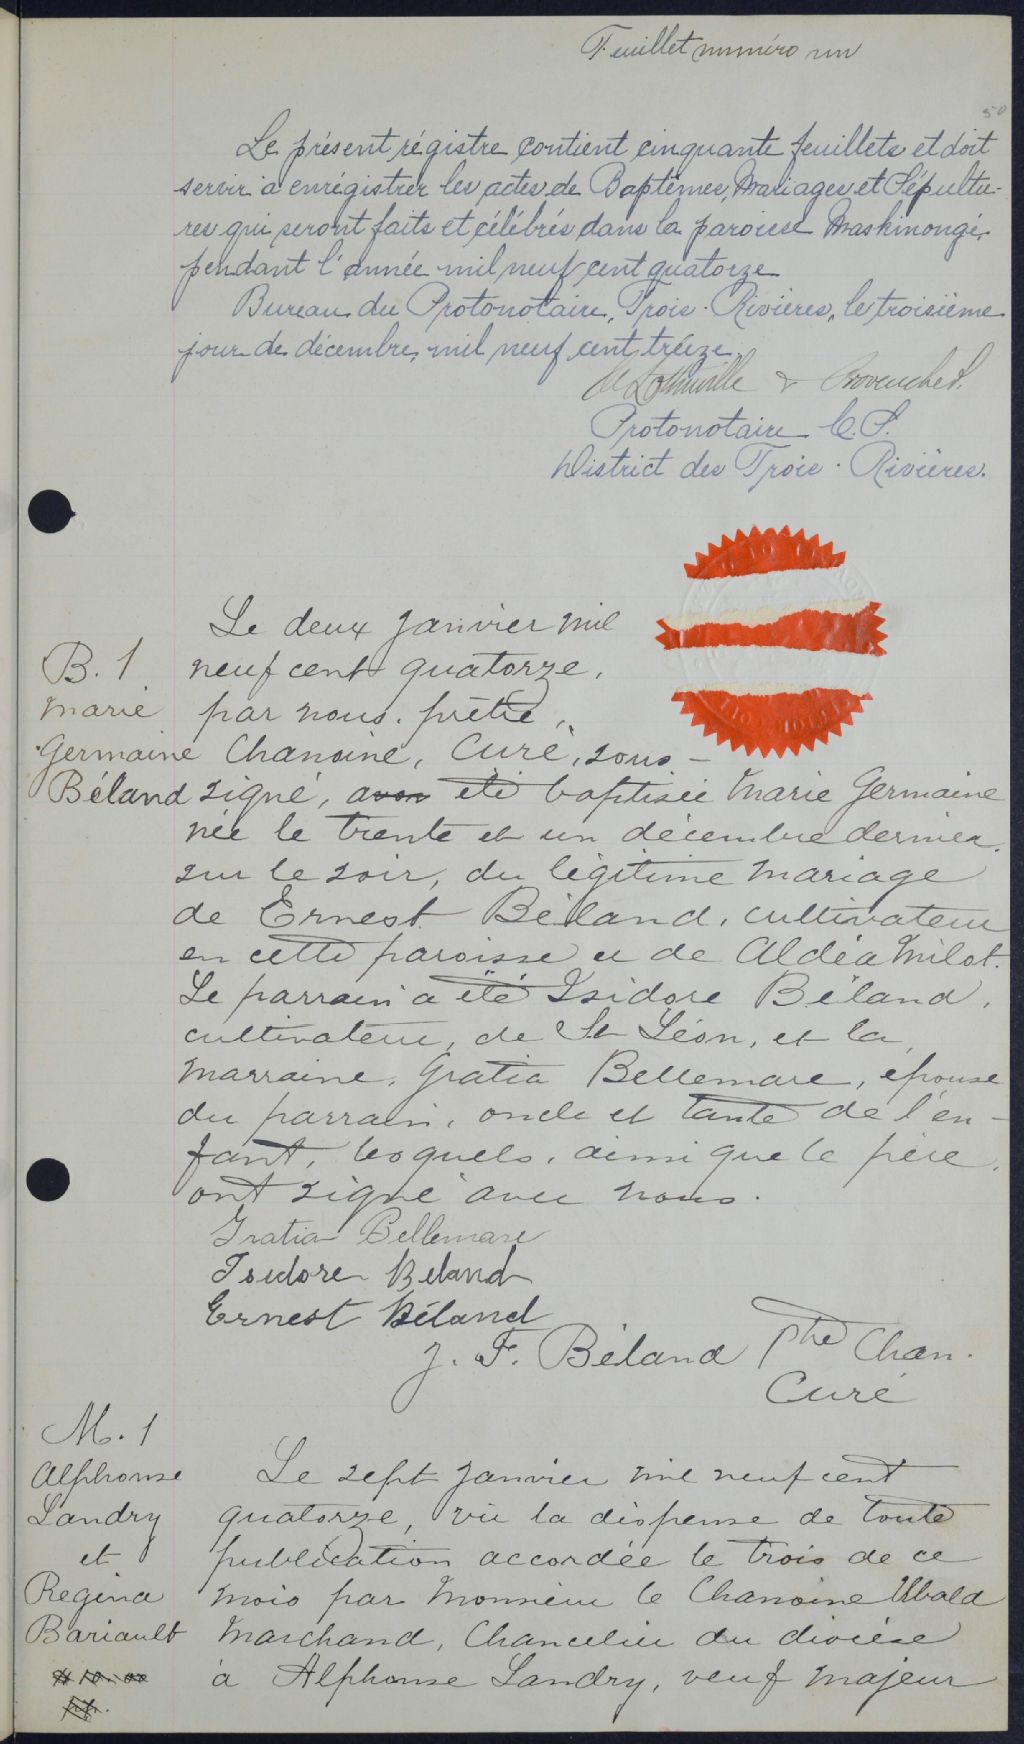 Feuillet numéro un
50
Le présent régistre contient cinquante feuillets et doit
servir à enrégistrer les actes de Baptêmes, Mariages et Sépultu-
res qui seront faits et célébrés dans la paroisse Maskinongé,
pendant l'année mil neuf cent quatorze
Bureau du Protonotaire, Trois-Rivières, le troisième
jour de décembre, mil neuf cent treize.
& Provencher
Protonotaire C.S.
District des Trois-Rivières.
Le deux janvier mil
B. 1 neuf cent quatorze,
Marie par nous, prêtre,
Germaine Chanoine, Curé, sous-
Béland signé, a été baptisée Marie Germaine
née le trente et un décembre dernier,
sur le soir, du légitime mariage
de Ernest Béland, cultivateur
en cette paroisse et de Aldéa Milot.
Le parrain a été Isidore Béland,
cultivateur, de St Léon, et la
marraine, Gratia Bellemare, épouse
du parrain, oncle et tante de l'en-
fant, lesquels, ainsi que le père,
ont signé avec nous.
Gratia Bellemare
Isidore Beland
Ernest Béland
J. F. Béland Ptre Chan.
Curé
M. 1
Alphonse Le sept janvier mil neuf cent
Landry quatorze, vu la dispense de toute
et publication accordée le trois de ce
Regina mois par Monsieur le Chanoine Ubald
Bariault Marchand, Chancelier du diocèse
$10.00 à Alphonse Landry, veuf majeur